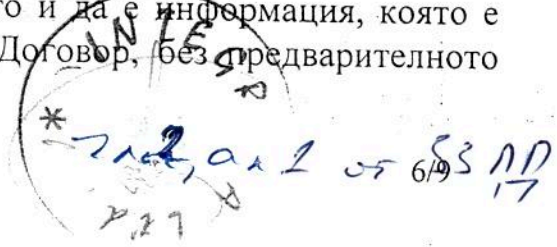 то и да е информация, която е
Договор, без предварителното
INTESA
чл. 2, ал. 1 от ЗЗЛД
6/9